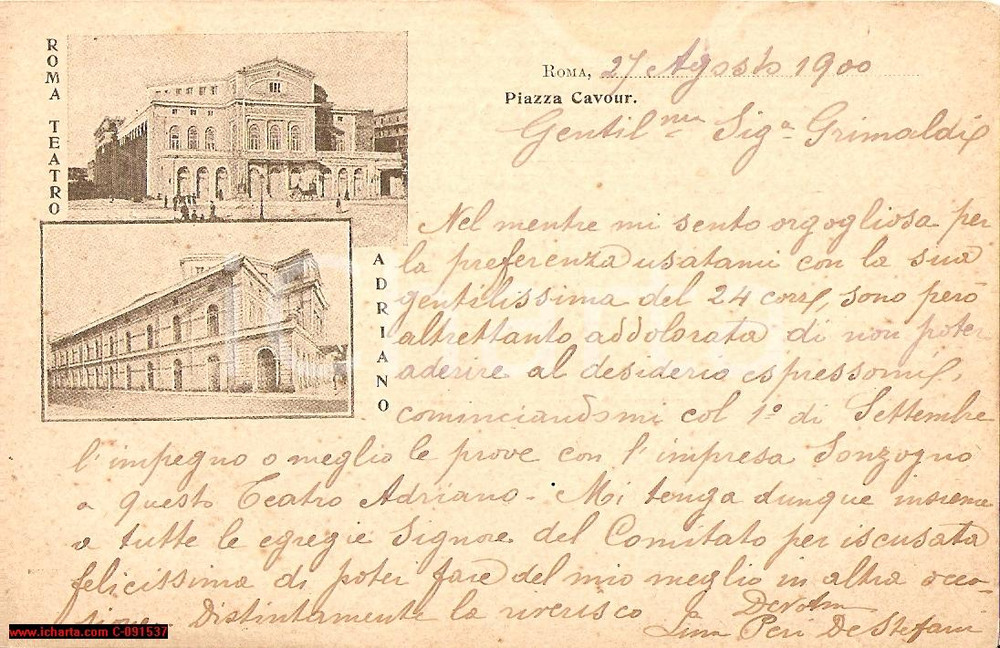 ROMA TEATRO
ADRIANO
ROMA, 27 Agosto 1900
Piazza Cavour.
Gentil.ma Sig.a Grimaldi
Nel mentre mi sento orgogliosa per
la preferenza usatami con la sua
gentilissima del 24 corr, sono però
altrettanto addolorata di non poter
aderire al desiderio espressomi,
cominciandomi col 1º di Settembre
l'impegno o meglio le prove con l'impresa Sonzogno
a questo Teatro Adriano - Mi tenga dunque insieme
a tutte le egregie Signore del Comitato per iscusata
felicissima di poter fare del mio meglio in altra occa-
sione. Distintamente la riverisco Devotma
Peri De Stefani
iCharta
www.icharta.com C-091537